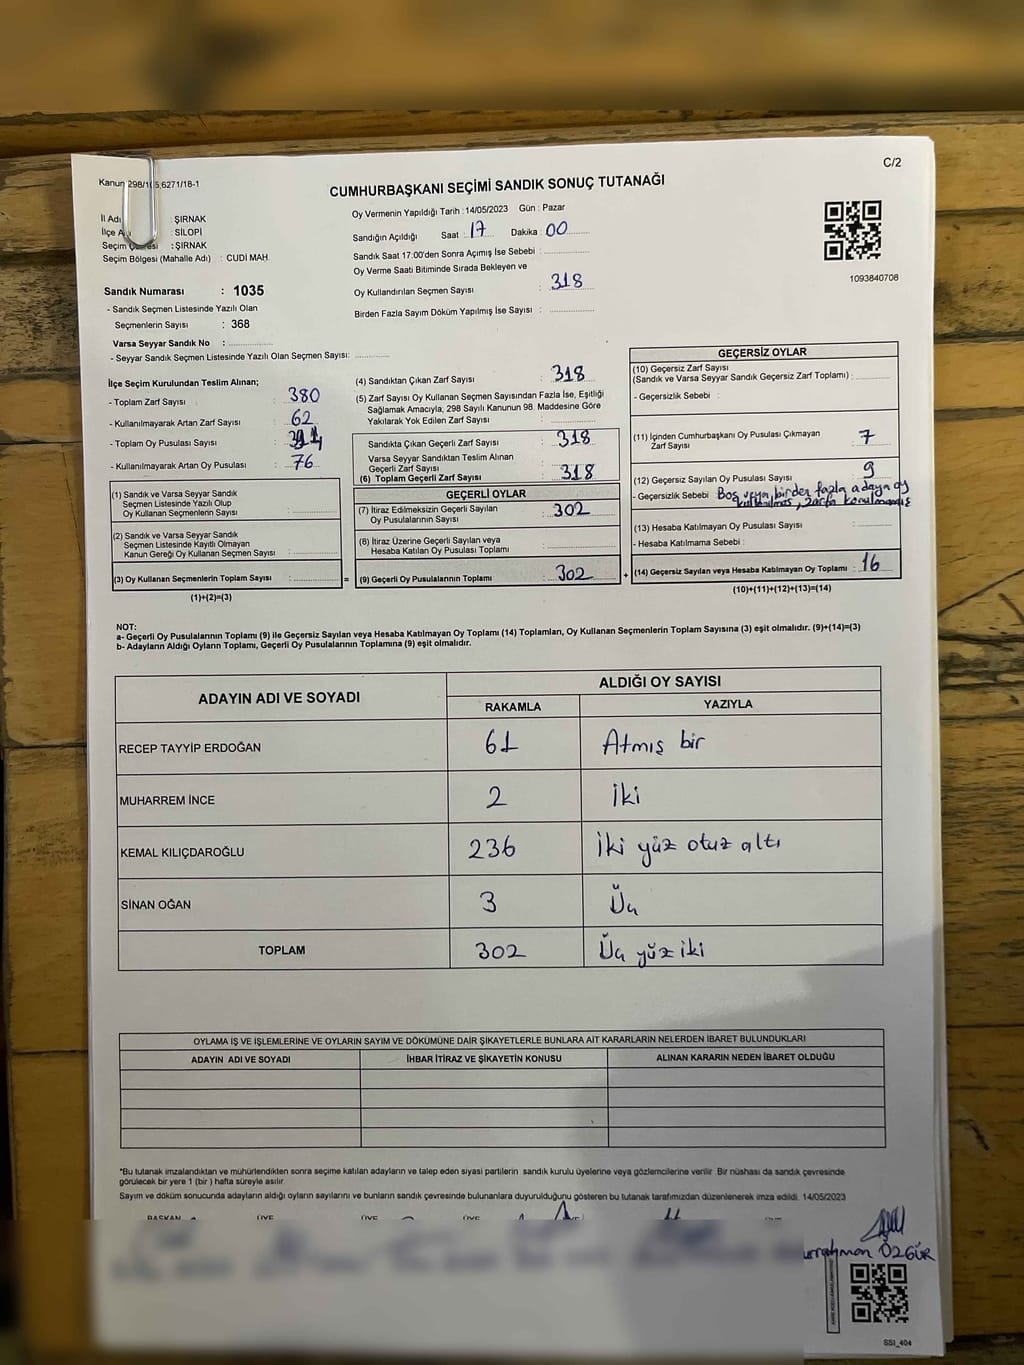 C/2
Kanun 298/105,6271/18-1
CUMHURBAŞKANI SEÇİMİ SANDIK SONUÇ TUTANAĞI
İl Adı : ŞIRNAK
İlçe A : SİLOPİ
Seçim Çevresi : ŞIRNAK
Seçim Bölgesi (Mahalle Adı) : CUDİ MAH.
Oy Vermenin Yapıldığı Tarih : 14/05/2023 Gün : Pazar
Sandığın Açıldığı Saat : 17 Dakika : 00
Sandık Saat 17.00'den Sonra Açımış İse Sebebi :
Oy Verme Saati Bitiminde Sırada Bekleyen ve
Oy Kullandırılan Seçmen Sayısı : 318
Birden Fazla Sayım Döküm Yapılmış İse Sayısı :
1093840708
Sandık Numarası : 1035
- Sandık Seçmen Listesinde Yazılı Olan
Seçmenlerin Sayısı : 368
Varsa Seyyar Sandık No :
- Seyyar Sandık Seçmen Listesinde Yazılı Olan Seçmen Sayısı:
İlçe Seçim Kurulundan Teslim Alınan;
- Toplam Zarf Sayısı : 380
- Kullanılmayarak Artan Zarf Sayısı : 62
- Toplam Oy Pusulası Sayısı :
- Kullanılmayarak Artan Oy Pusulası : 76
(1) Sandık ve Varsa Seyyar Sandık
Seçmen Listesinde Yazılı Olup
Oy Kullanan Seçmenlerin Sayısı :
(2) Sandık ve Varsa Seyyar Sandık
Seçmen Listesinde Kayıtlı Olmayan
Kanun Gereği Oy Kullanan Seçmen Sayısı :
(3) Oy Kullanan Seçmenlerin Toplam Sayısı : =
(1)+(2)=(3)
(4) Sandıktan Çıkan Zarf Sayısı : 318
(5) Zarf Sayısı Oy Kullanan Seçmen Sayısından Fazla İse, Eşitliği
Sağlamak Amacıyla; 298 Sayılı Kanunun 98. Maddesine Göre
Yakılarak Yok Edilen Zarf Sayısı :
Sandıkta Çıkan Geçerli Zarf Sayısı : 318
Varsa Seyyar Sandıktan Teslim Alınan
Geçerli Zarf Sayısı :
(6) Toplam Geçerli Zarf Sayısı : 318
GEÇERLİ OYLAR
(7) İtiraz Edilmeksizin Geçerli Sayılan
Oy Pusulalarının Sayısı : 302
(8) İtiraz Üzerine Geçerli Sayılan veya
Hesaba Katılan Oy Pusulası Toplamı :
(9) Geçerli Oy Pusulalarının Toplamı : 302 +
GEÇERSİZ OYLAR
(10) Geçersiz Zarf Sayısı
(Sandık ve Varsa Seyyar Sandık Geçersiz Zarf Toplamı) :
- Geçersizlik Sebebi :
(11) İçinden Cumhurbaşkanı Oy Pusulası Çıkmayan
Zarf Sayısı : 7
(12) Geçersiz Sayılan Oy Pusulası Sayısı : 9
- Geçersizlik Sebebi : Boş veya birden fazla adaya oy
kullanılmış, zarfa konulmamış
(13) Hesaba Katılmayan Oy Pusulası Sayısı :
- Hesaba Katılmama Sebebi :
(14) Geçersiz Sayılan veya Hesaba Katılmayan Oy Toplamı : 16
(10)+(11)+(12)+(13)=(14)
NOT:
a- Geçerli Oy Pusulalarının Toplamı (9) ile Geçersiz Sayılan veya Hesaba Katılmayan Oy Toplamı (14) Toplamları, Oy Kullanan Seçmenlerin Toplam Sayısına (3) eşit olmalıdır. (9)+(14)=(3)
b- Adayların Aldığı Oyların Toplamı, Geçerli Oy Pusulalarının Toplamına (9) eşit olmalıdır.
ADAYIN ADI VE SOYADI
ALDIĞI OY SAYISI
RAKAMLA YAZIYLA
RECEP TAYYİP ERDOĞAN 61 Atmış bir
MUHARREM İNCE 2 İki
KEMAL KILIÇDAROĞLU 236 İki yüz otuz altı
SİNAN OĞAN 3 Üç
TOPLAM 302 Üç yüz iki
OYLAMA İŞ VE İŞLEMLERİNE VE OYLARIN SAYIM VE DÖKÜMÜNE DAİR ŞİKAYETLERLE BUNLARA AİT KARARLARIN NELERDEN İBARET BULUNDUKLARI
ADAYIN ADI VE SOYADI İHBAR İTİRAZ VE ŞİKAYETİN KONUSU ALINAN KARARIN NEDEN İBARET OLDUĞU
*Bu tutanak imzalandıktan ve mühürlendikten sonra seçime katılan adayların ve talep eden siyasi partilerin sandık kurulu üyelerine veya gözlemcilerine verilir. Bir nüshası da sandık çevresinde
görülecek bir yere 1 (bir) hafta süreyle asılır.
Sayım ve döküm sonucunda adayların aldığı oyların sayılarını ve bunların sandık çevresinde bulunanlara duyurulduğunu gösteren bu tutanak tarafımızdan düzenlenerek imza edildi. 14/05/2023
BAŞKAN ÜYE ÜYE ÜYE
ÖZGÜR
SSI_404